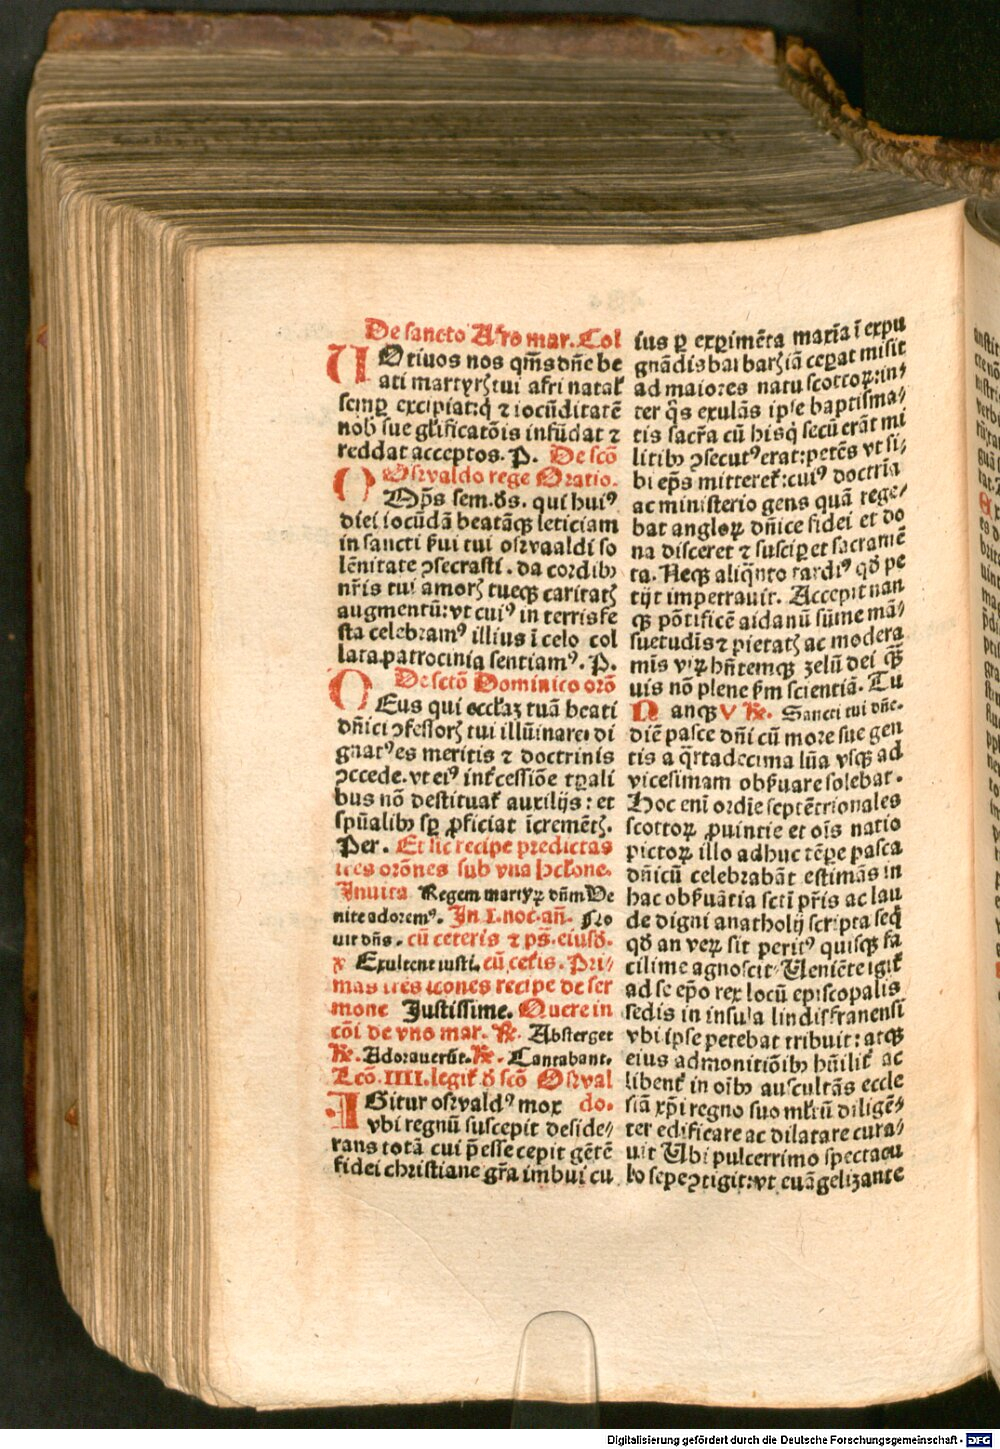 De sancto Afro mar. Col
UOtiuos nos qm̄s dn̄e be
ati martyrꝭ tui afri natal
semꝑ excipiat: q̄ ⁊ iocūditatē
nob sue gl̓ificatōis infūdat ⁊
reddat acceptos. P. De scō
Osrvaldo rege Oratio.
OMp̄s sem. ds. qui huiꝰ
diei iocūdā beatāqꝫ leticiam
in sancti ſ̓ui tui osrvaaldi so
lēnitate ꝯsecrasti. da cordibꝫ
nr̄is tui amorꝭ tueqꝫ caritatꝭ
augmentū: vt cuiꝰ in terris fe
sta celebramꝰ illius ī celo col
lata patrocinia sentiamꝰ. P.
De sctō Dominico orō
DEus qui eccl̓iaꝫ tuā beati
dn̄ici ꝯfessorꝭ tui illūinare di
gnatꝰ es meritis ⁊ doctrinis
ꝯcede. vt eiꝰ int̓cessiōe tꝑali
bus nō destituat̓ auxilijs: et
spūalibꝫ sꝑ ꝓficiat īcremētꝭ.
Per. Et sic recipe predictas
tres orōnes sub vna ꝯcl̓one.
Inuita Regem martyꝝ dn̄m Ve
nite adoremꝰ. In I. noc. an̄. No
uit dn̄s. cū ceteris ⁊ ps̄. eiusd̓.
v̓ Exultent iusti. cū cet̓is. Pri⸗
mas tres lcones recipe de ser
mone Justissime. Quere in
cōi de vno mar. R̓. Absterget
R̓. Adorauerūt. R̓. Cantabant.
Lcō. IIII. legit̓ d̓ scō Osrval
IGitur osrvaldꝰ mox do.
vbi regnū suscepit deside⸗
rans totā cui p̄esse cepit gētē
fidei christiane gr̄a imbui cu
ius ꝑ exꝑimēta maxīa ī expu
gnādis barbarꝭ iā ceꝑat misit
ad maiores natu scottoꝝ: in⸗
ter q̄s exulās ipse baptisma⸗
tis sacr̄a cū hisq̓ secū erāt mi
litibꝫ ꝯsecutꝰ erat: petēs vt si⸗
bi ep̄s mitteret̓: cuiꝰ doctrīa
ac ministerio gens quā rege⸗
bat angloꝝ dn̄ice fidei et do
na disceret ⁊ susciꝑet sacramē
ta. Neqꝫ aliq̄nto tardiꝰ qd̓ pe
tijt impetrauit. Accepit nan
qꝫ pōtificē aidanū sūme mā⸗
suetudīs ⁊ pietatꝭ ac modera
mīs viꝝ hn̄temqꝫ zelū dei qꝫ̄
uis nō plene ẜm scientiā. Tu
Nanqꝫ V R̓. Sancti tui dn̄e.
diē pasce dn̄i cū more sue gen
tis a q̄rtadecima lūa vsqꝫ ad
vicesimam obẜuare solebat.
Hoc enī ordīe septētrionales
scottoꝝ ꝓuintie et oīs natio
pictoꝝ illo adhuc tēꝑe pasca
dn̄icū celebrabāt estimās in
hac obẜuātia scti pr̄is ac lau
de digni anatholij scripta seq̄
qd̓ an veꝝ sit peritꝰ quisqꝫ fa
cilime agnoscit Ueniēte igit̓
ad se ep̄o rex locū episcopalis
sedis in insula lindisfranensi
vbi ipse petebat tribuit: atqꝫ
eius admonitiōibꝫ hūilit̓ ac
libent̓ in oībꝫ auscultās eccle
siā xp̄i regno suo ml̓tū diligē⸗
ter edificare ac dilatare cura⸗
uit Ubi pulcerrimo spectacu
lo sepe ꝯtigit: vt euāgelizante
Digitalisierung gefördert durch die Deutsche Forschungsgemeinschaft - DFG